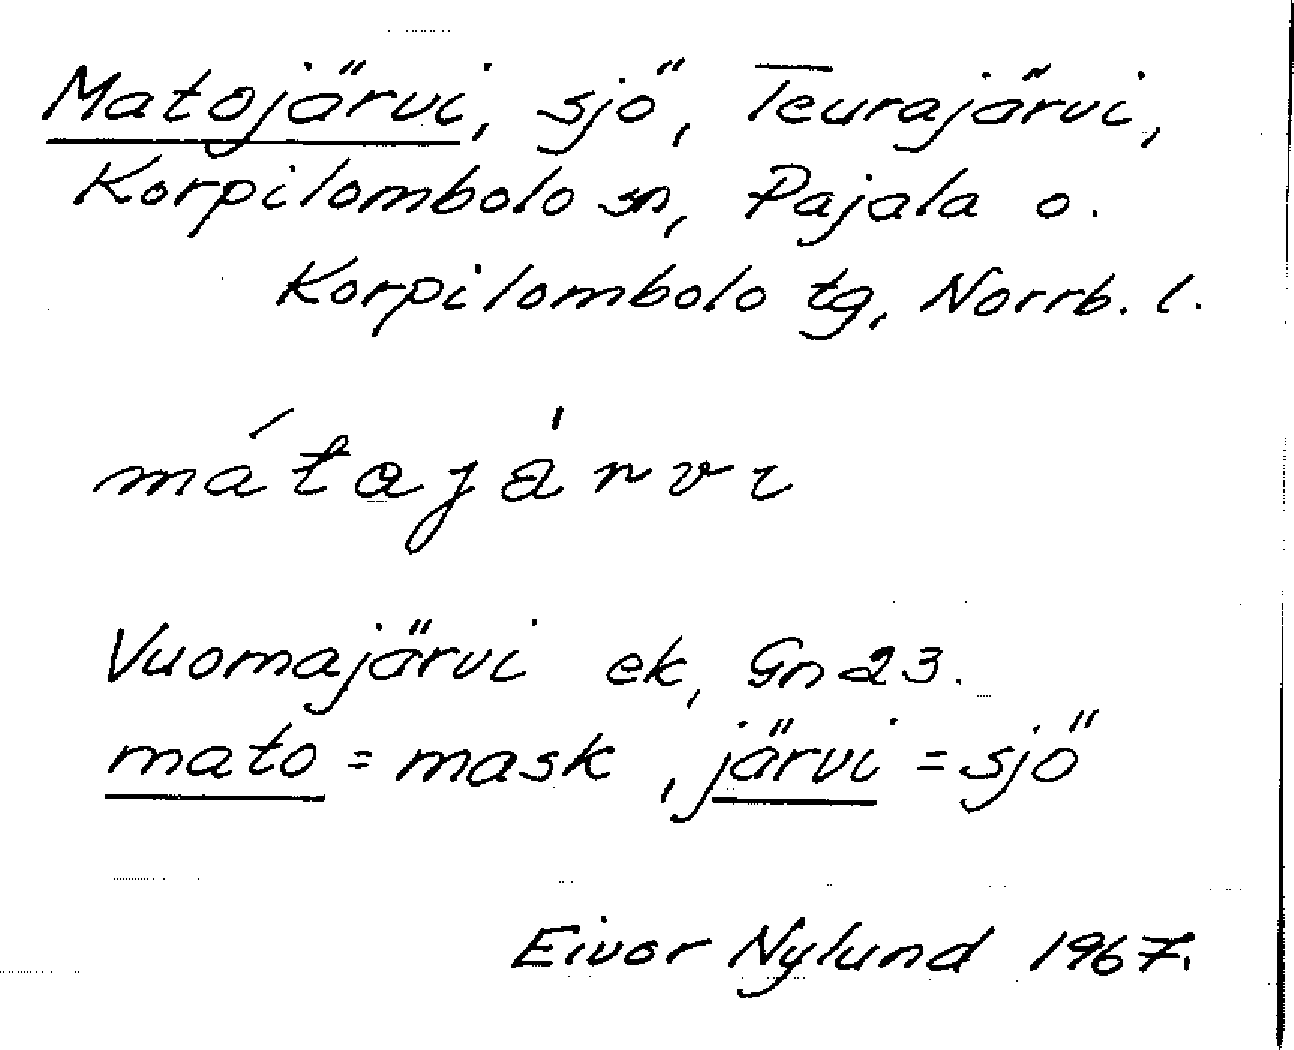 Matojärvi, sjö, Teurajärvi,
Korpilombolo sn, Pajala o.
Korpilombolo tg, Norrb. l.
Vuomajärvi ek, Gn 23.
mato = mask, järvi = sjö
Eivor Nylund 1967.